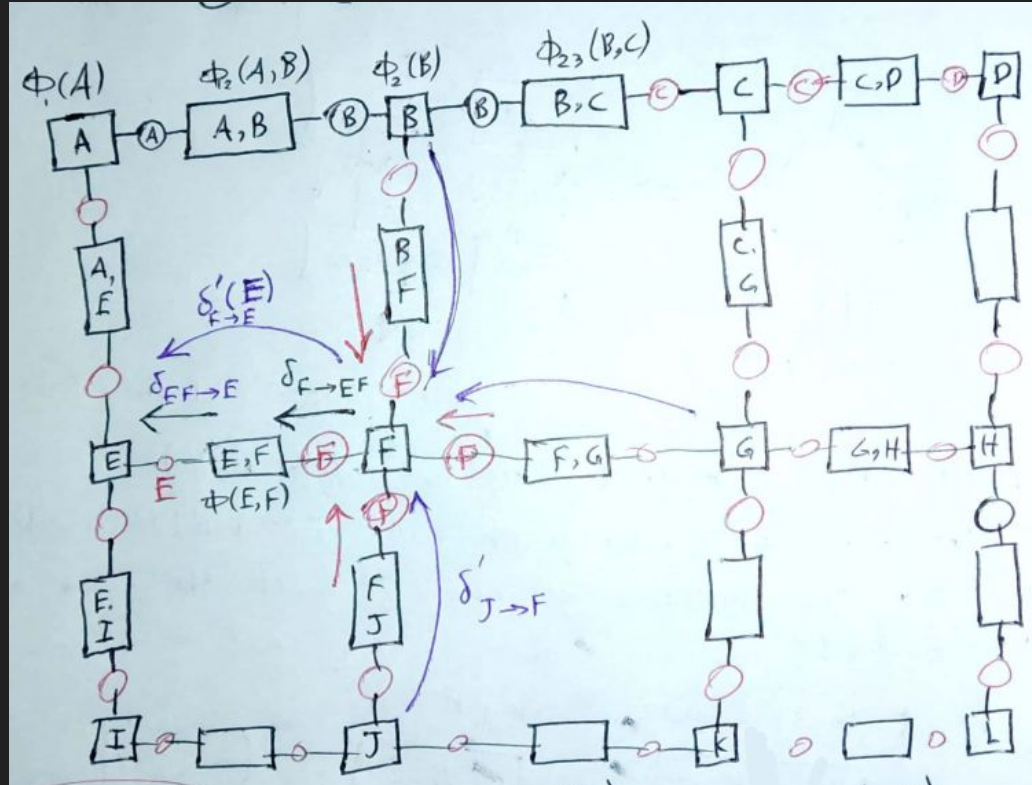 Φ₁(A) Φ₂(A,B) Φ₂(B) Φ₂₃(B,C)
A A A,B B B B B,C C C C C,D D D
A,E B F C.G
δ'F→E(E)
δEF→E δF→EF F
E E E,F F F F F,G G G,H H
Φ(E,F) F
E.I F J δ'J→F
I J K L